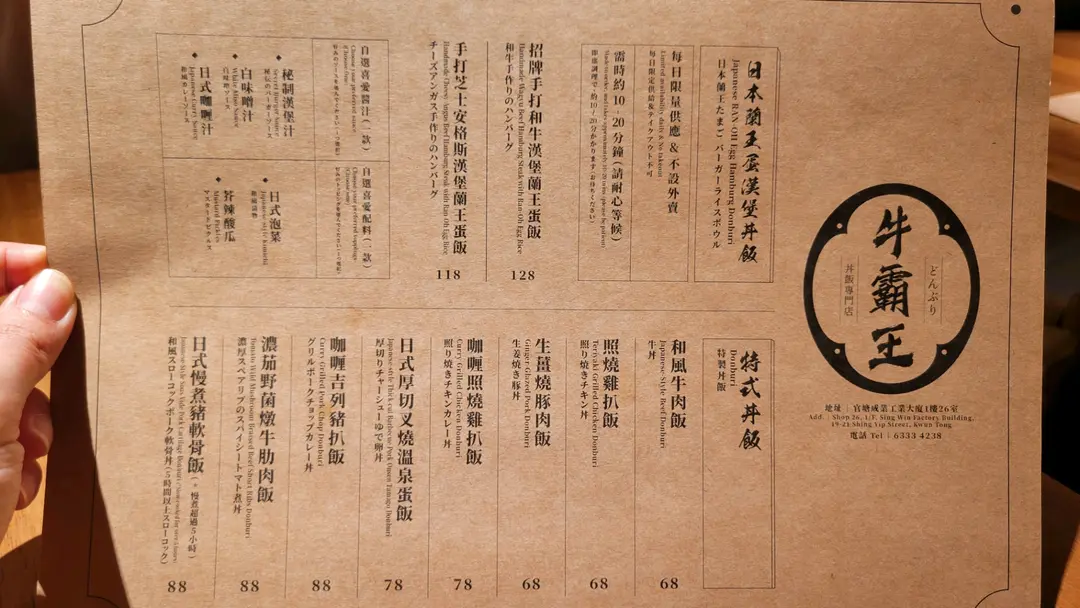 牛霸王
どんぶり
丼飯專門店
地址｜官塘成業工業大廈1樓26室
Add.｜Shop 26, 1/F, Sing Win Factory Building,
19-21 Shing Yip Street, Kwun Tong
電話 Tel｜6333 4238
日本蘭王蛋漢堡丼飯
Japanese RAN-OH Egg Hamburg Donburi
日本蘭王たまご バーガーライスボウル
每日限量供應 & 不設外賣
Limited availability daily & No takeout
毎日限定供給&テイクアウト不可
需時約10-20分鐘(請耐心等候)
即席調理で約10-20分かかります(お待ちください)
招牌手打和牛漢堡蘭王蛋飯
Handmade Wagyu Beef Hamburg Steak with Ran-Oh Egg Rice
和牛手作りのハンバーグ
128
手打芝士安格斯漢堡蘭王蛋飯
Handmade Cheesy Angus Beef Hamburg Steak with Ran-Oh Egg Rice
チーズアンガス手作りのハンバーグ
118
自選喜愛醬汁(一款)
Choose your preferred sauce
秘制漢堡汁
Secret Burger Sauce
秘伝のバーガーソース
白味噌汁
White Miso Sauce
白味噌ソース
日式咖喱汁
Japanese Curry Sauce
和風カレーソース
自選喜愛配料(一款)
Choose your preferred toppings
日式泡菜
Japanese Style Kimchi
芥辣酸瓜
Mustard Pickles
マスタードピクルス
特式丼飯
Donburi
特製丼飯
和風牛肉飯
Japanese Style Beef Donburi
牛丼
68
照燒雞扒飯
Teriyaki Grilled Chicken Donburi
照り焼きチキン丼
68
生薑燒豚肉飯
Ginger Glazed Pork Donburi
生姜焼き豚丼
68
咖喱照燒雞扒飯
Curry Grilled Chicken Donburi
照り焼きチキンカレー丼
78
日式厚切叉燒溫泉蛋飯
Japanese-style Thick cut Barbecue Pork Onsen Tamago Donburi
厚切りチャーシューゆで卵丼
78
咖喱吉列豬扒飯
Curry Grilled Pork Chop Donburi
グリルポークチョップカレー丼
88
濃茄野菌燉牛肋肉飯
Tomato Wild Mushroom Braised Beef Short Ribs Donburi
濃厚スペアリブのスパイシートマト煮丼
88
日式慢煮豬軟骨飯(*慢煮超過5小時)
和風スローコックポーク軟骨丼(5時間以上スローコック)
88